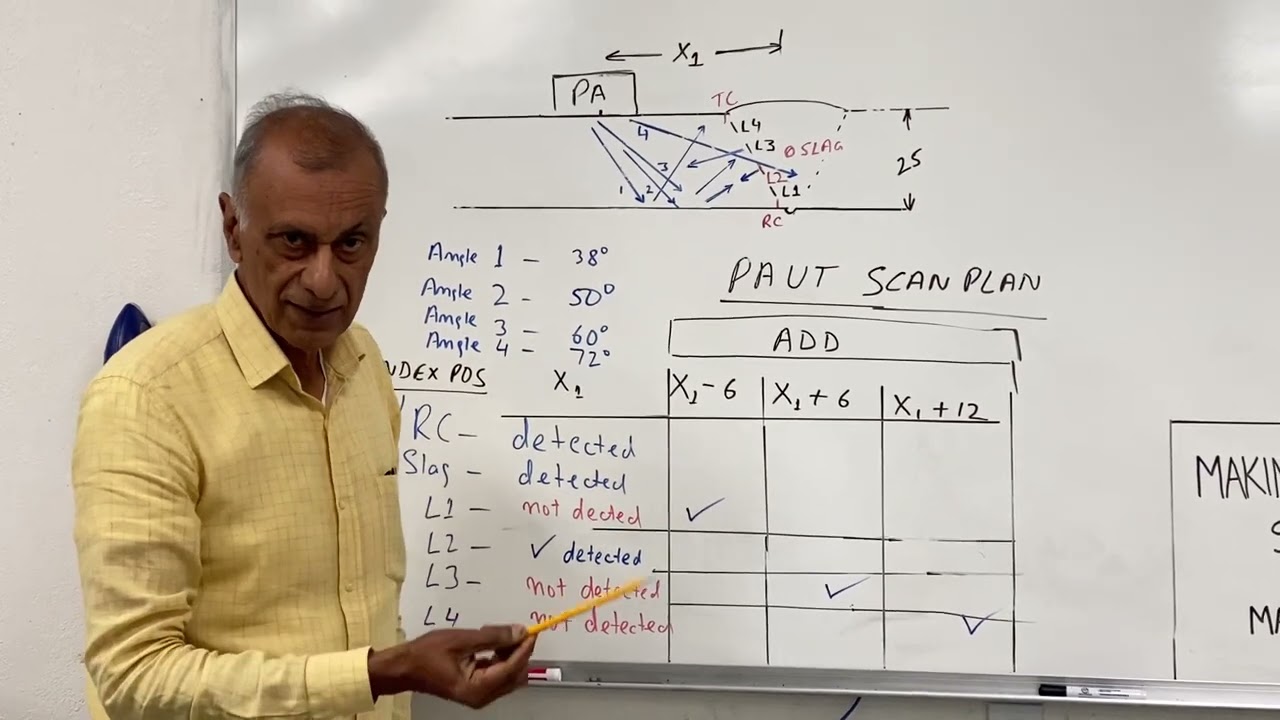 X1
PA
TC
L4
4
L3
SLAG
3
L2
25
1
2
L1
RC
Angle 1 - 38°
Angle 2 - 50°
Angle 3 - 60°
Angle 4 - 72°
PAUT SCANPLAN
ADD
NDEX POS X1 X1-6 X1+6 X1+12
RC - detected
Slag - detected
L1 - not dected ✓
L2 - ✓ detected
L3 - not detected ✓
L4 not detected ✓
MAKIN
S
MA